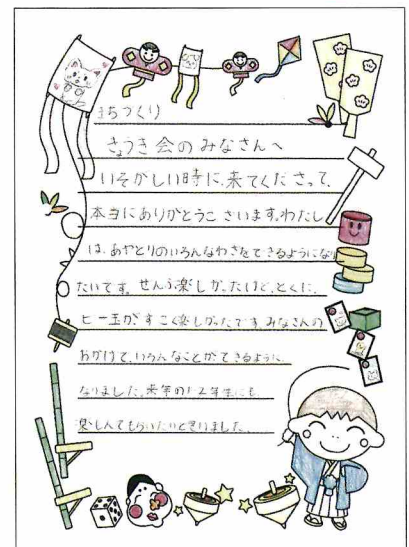 まちづくり
きょうぎ会のみなさんへ
いそがしい時に、来てくださって、
本当にありがとうございます。わたし
は、あやとりのいろんなわざをできるようになり
たいです。ぜんぶ楽しかったけど、とくに、
ビー玉が、すごく楽しかったです。みなさんの
おかげで、いろんなことができるように、
なりました。来年の1.2年生にも、
楽しんでもらいたいと思いました。